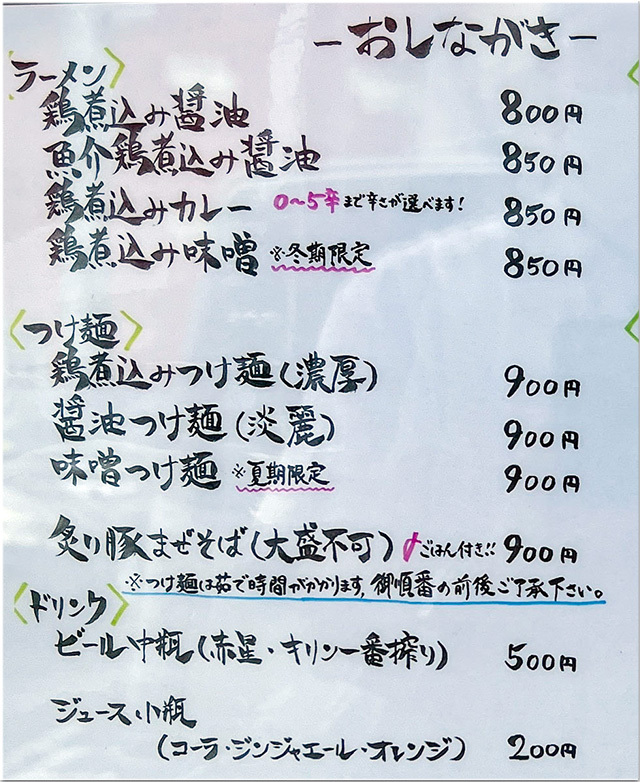 ーおしながきー
〈ラーメン〉
鶏煮込み醤油 800円
魚介鶏煮込み醤油 850円
鶏煮込みカレー 0〜5辛まで辛さが選べます! 850円
鶏煮込み味噌 ※冬期限定 850円
〈つけ麺〉
鶏煮込みつけ麺(濃厚) 900円
醤油つけ麺(淡麗) 900円
味噌つけ麺 ※夏期限定 900円
炙り豚まぜそば(大盛不可) 〆ごはん付き!! 900円
※つけ麺は茹で時間がかかります,御順番の前後ご了承下さい。
〈ドリンク〉
ビール中瓶(赤星・キリン一番搾り) 500円
ジュース小瓶
(コーラ・ジンジャエール・オレンジ) 200円